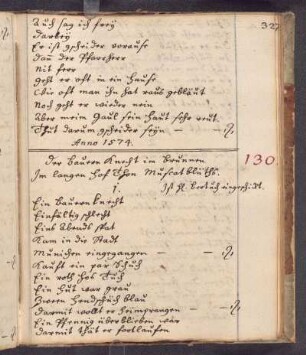 327
Auch sag ich freÿ
darbeÿ
Er ist gscheider vorauß
dan der Pfarrherr
nit ferr
geht er oft in ein hauß
Wie oft man ihn hat rauß gebläut
Noch geht er wieder nein
Aber mein Gaul sein haut sehr reut.
Thut darum gscheider seÿn
Anno 1574.
130.
Der Bauern Knecht im Brunnen
Im langen Hof Thon Muscatblüths.
1.
Ein Bauern knecht
Einfältig schlecht
Eins Abends spat
Kam in die Stadt
München eingegangen
Kauft ein par Schuh
Ein roth hos Tuch
Ein Hut war grau
Zween Handschuch blau
darmit wollt er heimprangen
Ein Pfennig überblieben war
darmit thät er fortlaufen